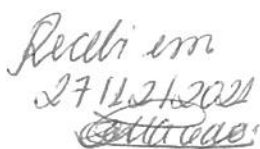 Recebi em
27/12/2021